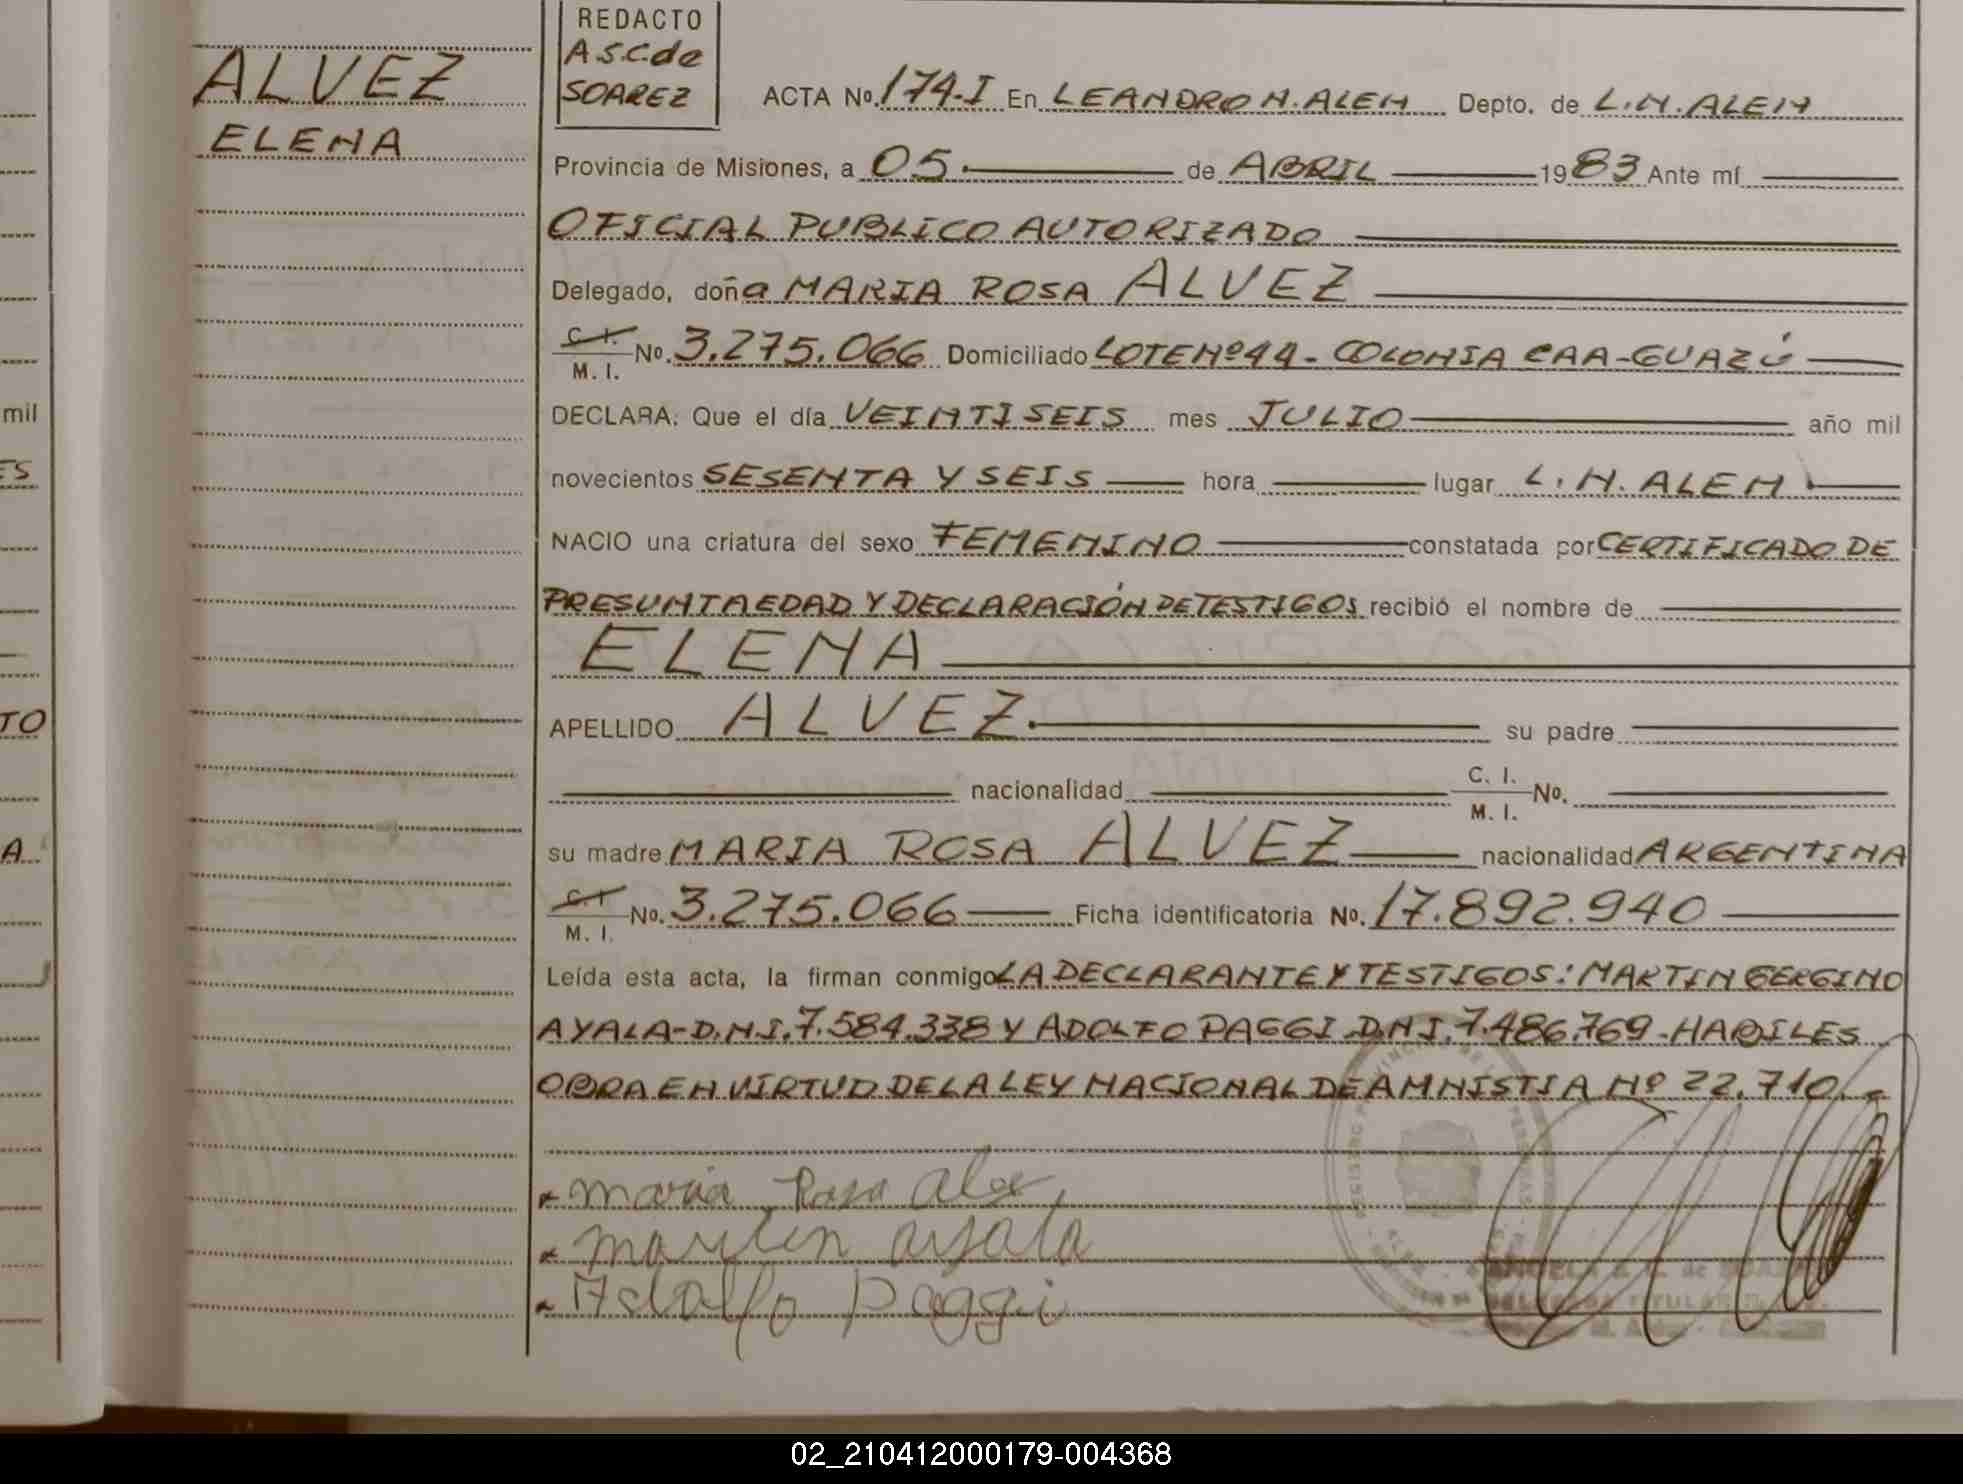 ALVEZ
ELENA
mil
ES
TO
A
REDACTO
A.S.C. de
SOAREZ
ACTA No. 174-I En LEANDRO N. ALEM Depto. de L.N. ALEM
Provincia de Misiones, a 05. de ABRIL 1983 Ante mí
OFICIAL PUBLICO AUTORIZADO
Delegado, doña MARIA ROSA ALVEZ
C. I.
M. I. No. 3.275.066 Domiciliado LOTE Nº 44 - COLONIA CAA-GUAZÚ
DECLARA: Que el día VEINTISEIS mes JULIO año mil
novecientos SESENTA Y SEIS hora lugar L. N. ALEM
NACIO una criatura del sexo FEMENINO constatada por CERTIFICADO DE
PRESUNTA EDAD Y DECLARACIÓN DE TESTIGOS recibió el nombre de
ELENA
APELLIDO ALVEZ. su padre
nacionalidad C. I.
M. I. No.
su madre MARIA ROSA ALVEZ nacionalidad ARGENTINA
C. I.
M. I. No. 3.275.066 Ficha identificatoria No. 17.892.940
Leída esta acta, la firman conmigo LA DECLARANTE Y TESTIGOS: MARTIN GERGINO
AYALA-D.N.I. 7.584.338 Y ADOLFO PAGGI D.N.I. 7.486.769 - HABILES
OBRA EN VIRTUD DE LA LEY NACIONAL DE AMNISTIA Nº 22.710.-
maria Rosa
martin ayala
Adolfo Paggi
02_210412000179-004368